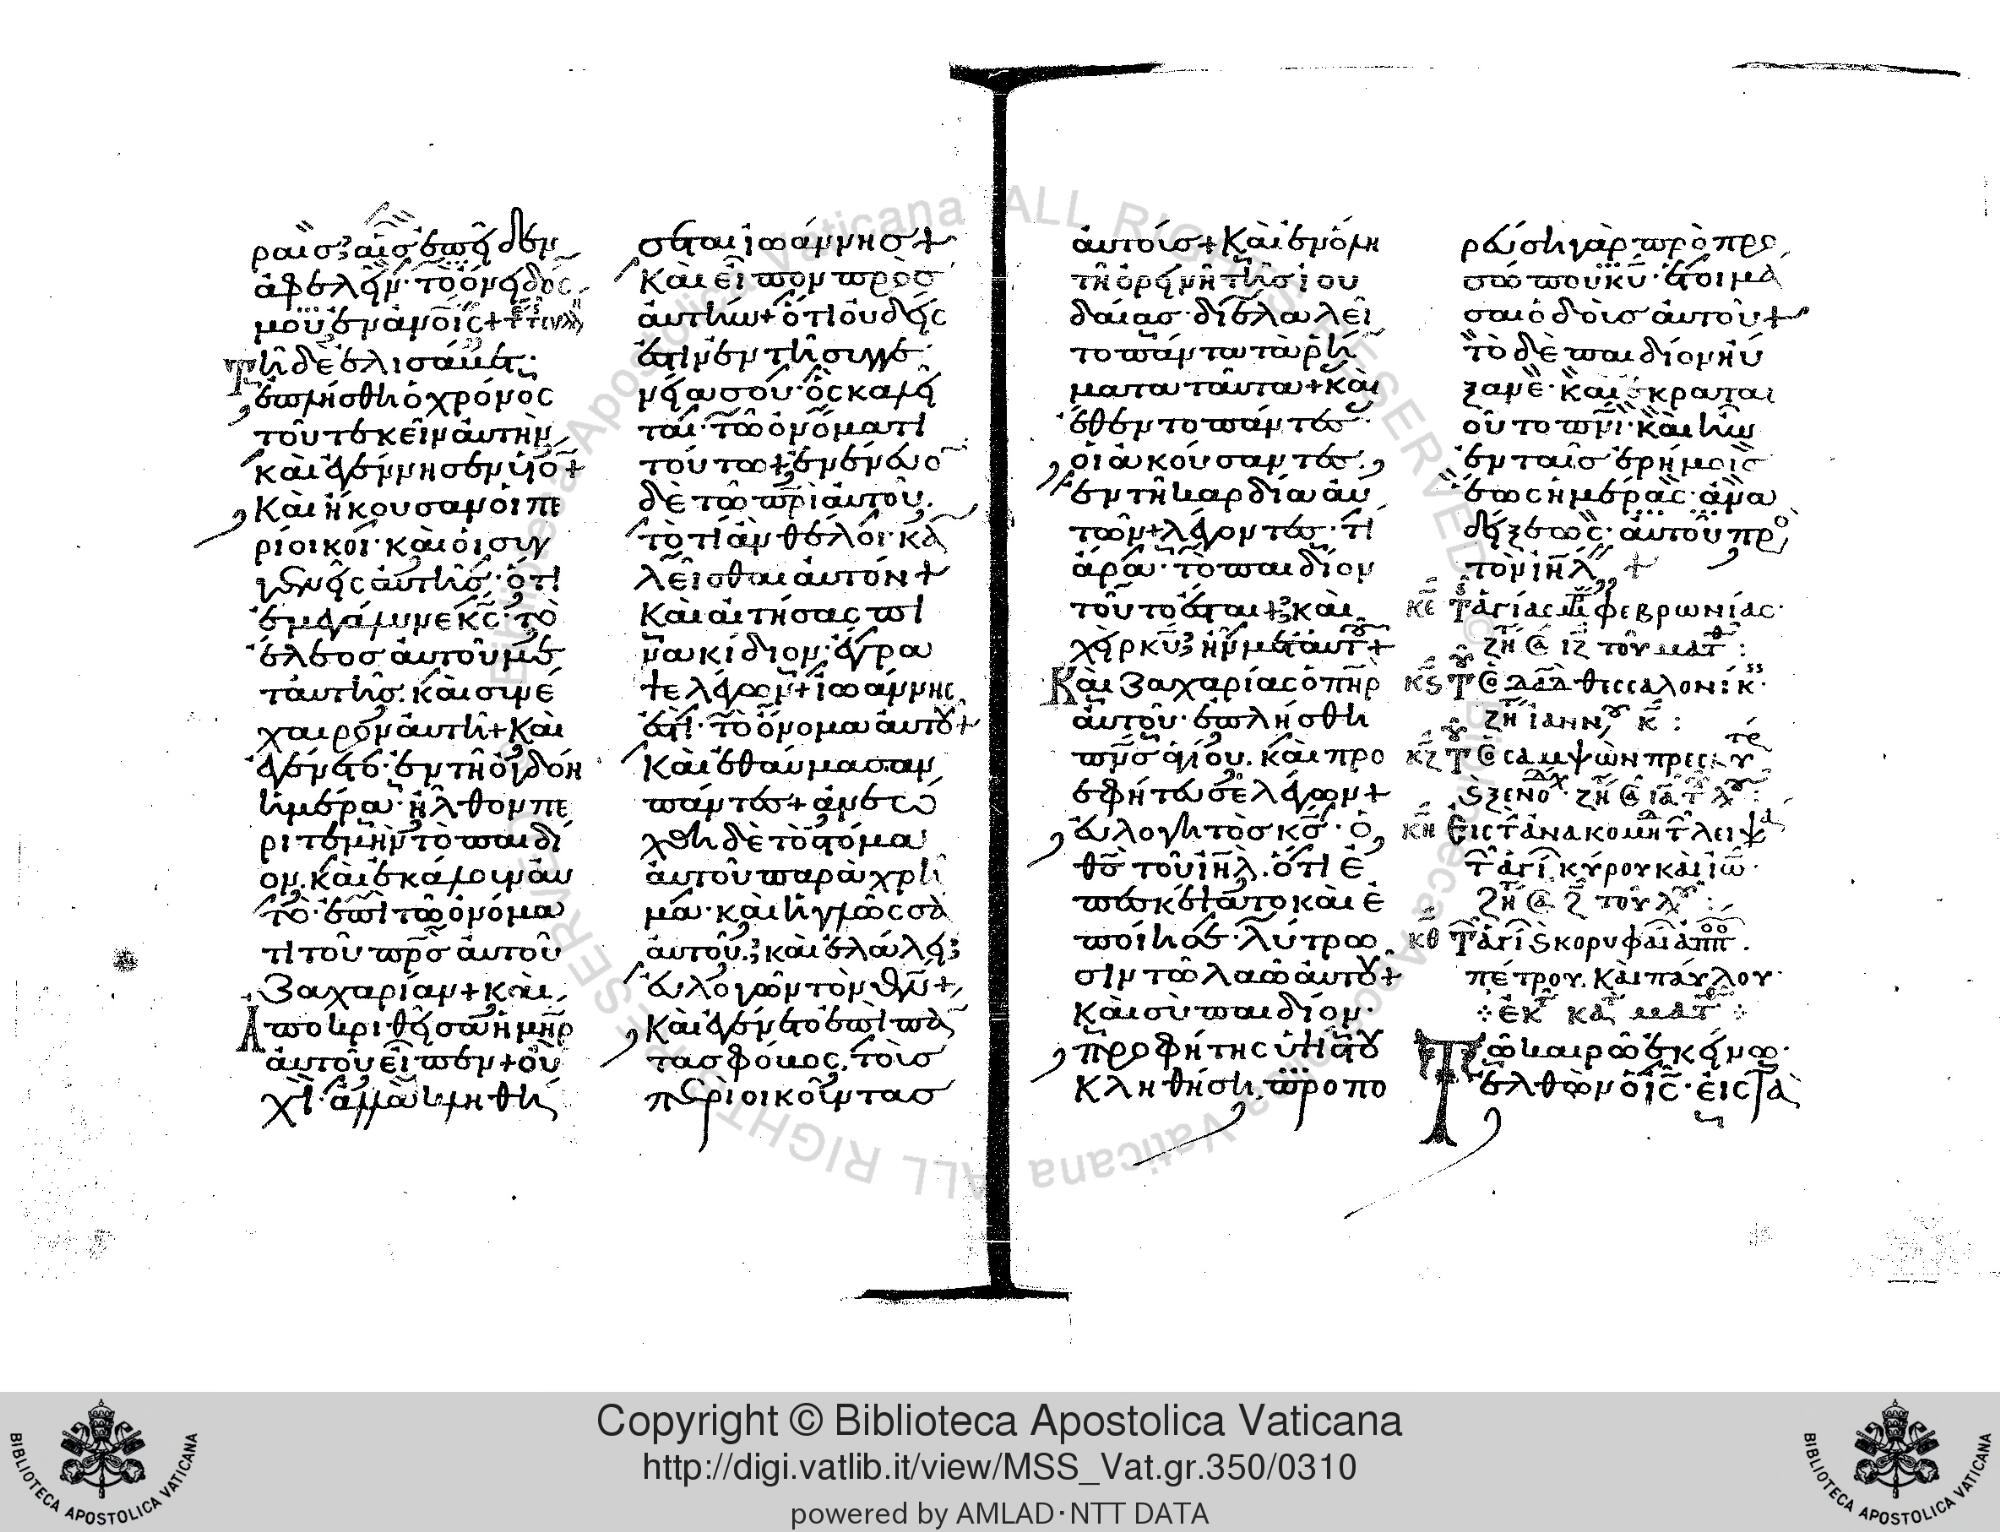 ραις αἷς ἐπεῖδεν
ἀφελεῖν τὸ ὄνειδός
μου ἐν ἀνοις+
Τῆ δὲ ἐλισάβετ
ἐπλήσθη ὁ χρόνος
τοῦ τεκεῖν αὐτὴν
καὶ ἐγέννησεν υἱὸ+
Καὶ ἤκουσαν οἱ πε
ρίοικοι καὶ οἱ συγ
γενεῖς αὐτῆς, ὅτι
ἐμεγάλυνε κς τὸ
ἔλεος αὐτοῦ με
τ αὐτῆς. καὶ συνέ
χαιρον αὐτῆ+ Καὶ
ἐγένετο ἐν τῆ ὀγδόη
ἡμέρα ἦλθον πε
ριτεμεῖν τὸ παιδί
ον. καὶ ἐκάλουν αὐ
τὸ ἐπὶ τῶ ὀνόμα
τι τοῦ πρς αὐτοῦ
Ζαχαρίαν+ καὶ
Ἀποκριθεῖσα ἡ μηρ
αὐτοῦ εἶπεν+ οὐ
χὶ ἀλλὰ κληθή
σεται ἰωάννης+
Καὶ εἶπον πρὸς
αὐτὴν+ ὅτι οὐδείς
ἐστιν ἐν τῆ συγγε
νεία σου ὃς καλεῖ
ται τῶ ὀνόματι
τούτω+ ἐνένευο
δὲ τῶ πρὶ αὐτοῦ.
τὸ τί ἂν θέλοι κα
λεῖσθαι αὐτόν+
Καὶ αἰτήσας πι
νακίδιον ἔγρα
ψε λέγων+ ἰωάννης
ἐστὶ τὸ ὄνομα αὐτοῦ+
Καὶ ἐθαύμασαν
πάντες+ ἀνεώ
χθη δὲ τὸ στόμα
αὐτοῦ παραχρῆ
μα καὶ ἡ γλῶσσα
αὐτοῦ. καὶ ἐλάλει
εὐλογῶν τὸν θν+
Καὶ ἐγένετο ἐπὶ πά
τας φόβος, τοὺς
περιοικοῦντας
αὐτούς+ Καὶ ἐν ὅλη
τῆ ὀρεινῆ τῆς ἰου
δαίας διελαλεῖ
το πάντα τὰ ῥή
ματα ταῦτα+ καὶ
ἔθεντο πάντες
οἱ ἀκούσαντες.
ἐν τῆ καρδία αὐ
τῶν+ λέγοντες τί
ἄρα τὸ παιδίον
τοῦτο ἔσται+ καὶ
χεὶρ κυ ἦν μετ αὐτ+
Καὶ Ζαχαρίας ὁ πηρ
αὐτοῦ ἐπλήσθη
πνς ἁγίου. καὶ προ
εφήτευσε λέγων+
Εὐλογητὸς κς ὁ
θς τοῦ ιηλ. ὅτι ἐ
πεσκέψατο καὶ ἐ
ποίησε λύτρω
σιν τῶ λαῶ αὐτοῦ+
Καὶ σὺ παιδίον
προφήτης ὑψίστου
κληθήση, προπο
ρεύση γὰρ πρὸ προ
σώπου κυ ἑτοιμά
σαι ὁδοὺς αὐτοῦ+
τὸ δὲ παιδίον ηὔ
ξανε καὶ ἐκραται
οῦτο πνι καὶ ἦν
ἐν ταῖς ἐρήμοις
ἕως ἡμέρας ἀνα
δείξεως αὐτοῦ πρ
τὸν ιηλ +
κε Τ ἁγίας μ φεβρωνίας
ζη ιζ τοῦ ματθ :
κϛ Τ δαδ θεσσαλονικ
ζη ιανν κ :
κζ Τ σαμψὼν πρεσβυτέ
κη Εἰς τ ἀνακομηδ λειψ
τ ἁγι κύρου καὶ ιω
ζη ζ τοῦ
κθ Τ ἁγι κορυφαι ἀπ.
πέτρου. καὶ παύλου
ἐκ κατ ματ
Τῶ καιρῶ ἐκείνω
ἐλθὼν ὁ ις εἰς τὰ